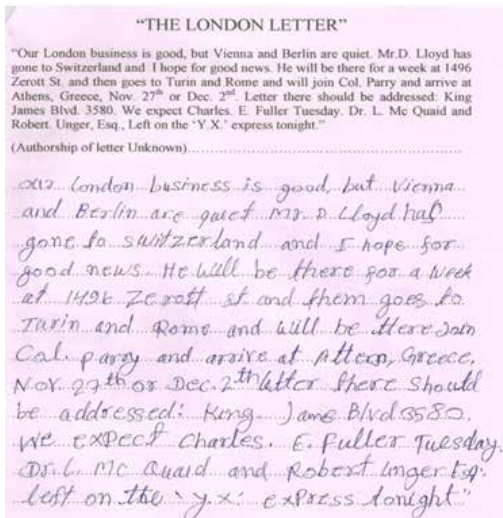 "THE LONDON LETTER"
"Our London business is good, but Vienna and Berlin are quiet. Mr.D. Lloyd has
gone to Switzerland and I hope for good news. He will be there for a week at 1496
Zerott St. and then goes to Turin and Rome and will join Col. Parry and arrive at
Athens, Greece, Nov. 27th or Dec. 2nd. Letter there should be addressed: King
James Blvd. 3580. We expect Charles. E. Fuller Tuesday. Dr. L. Mc Quaid and
Robert. Unger, Esq., Left on the 'Y.X.' express tonight."
(Authorship of letter Unknown)
our London business is good, but Vienna
and Berlin are quiet Mr. D. Lloyd has
gone to switzerland and I hope for
good news. He will be there for a week
at 1496 Zerott st and them goes to
Turin and Rome and will be there Join
Col. parry and arrive at Attern, Greece,
Nov. 27th or Dec. 2th latter there should
be addressed: King. Jame Blvd 3580.
We expect charles. E. Fuller Tuesday.
Dr. L. Mc Quaid and Robert Unger Esq.
left on the 'y.x.' exPress tonight"